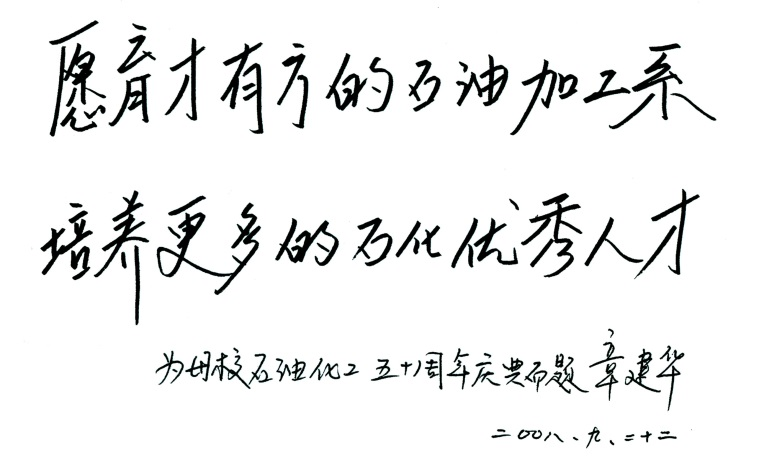 愿育才有方的石油加工系
培养更多的石化优秀人才
为母校石油化工五十周年庆典而题 章建华
二〇〇八、九、二十二